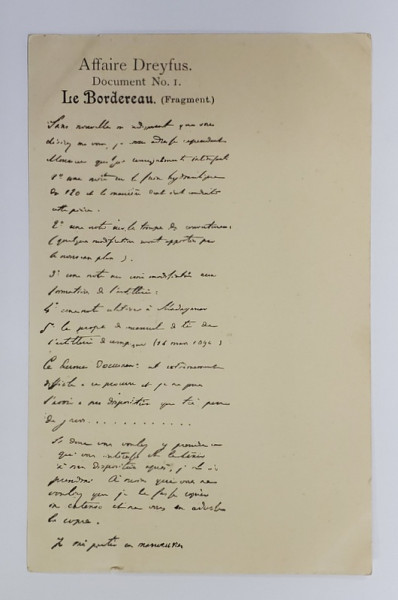 Affaire Dreyfus.
Document No. 1.
Le Bordereau. (Fragment.)
Sans nouvelles m' indiquant que vous
désirez me voir, je vous adresse cependant
Monsieur quelques renseignements intéressants
1° une note sur le frein hydraulique
du 120 et la manière dont s'est conduite
cette pièce.
2° une note sur les troupes de couverture.
(quelques modifications seront apportées par
le nouveau plan).
3° une note sur une modification aux
formations de l'artillerie:
4° une note relative à Madagascar
5° le projet de manuel de tir de
l'artillerie de campagne (14 mars 1894)
Ce dernier Document est extrêmement
difficile à se procurer et je ne puis
l'avoir à ma disposition que très peu
de jours . . . . . . . . . . . .
Si donc vous voulez y prendre ce
qui vous intéresse et le tenir
à ma disposition après, je le
prendrai. À moins que vous ne
vouliez que je le fasse copier
in extenso et ne vous en adresse
la copie.
Je vais partir en manœuvres